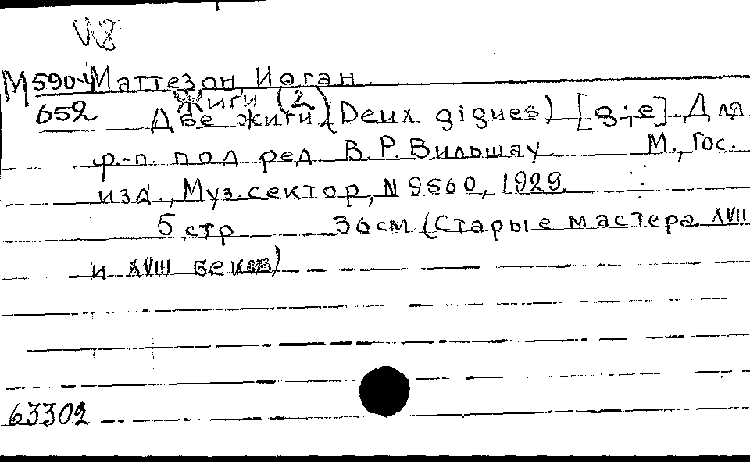 М590-4 Маттезон, Иоган
Жиги (2)
652 Две жиги (Deux gigues) [g-; e]. Для
ф.-п. под ред. В. Р. Вильшау М., Гос.
изд., Муз. сектор, N 9560, 1929
5 стр 36 см (Старые мастера XVII
и XVIII веков)
63302